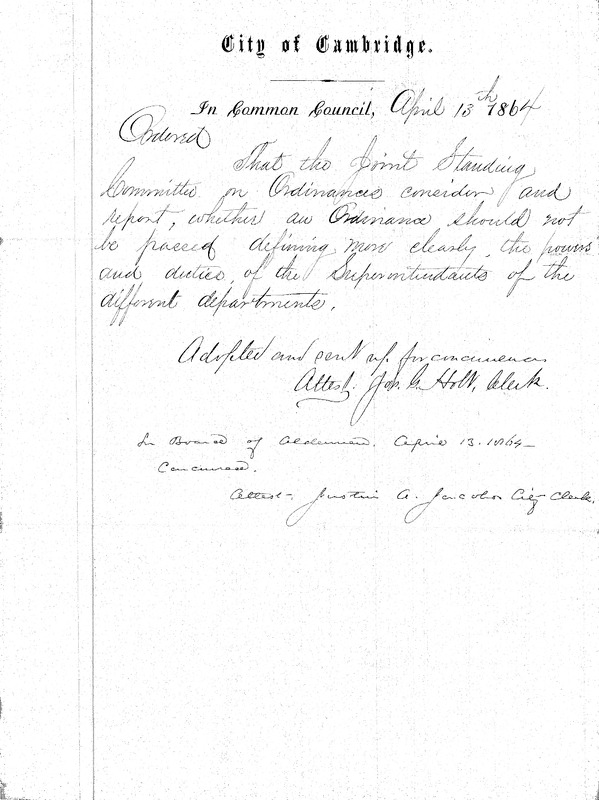 City of Cambridge.
In Common Council, April 13th 1864
Ordered
That the Joint Standing
Committee on Ordinances consider and
report, whether an Ordinance should not
be passed defining more clearly, the powers
and duties, of the Superintendants of the
different departments.
Adopted and sent up for concurrence
Attest. Jos. G. Holt, Clerk.
In Board of Aldermen. April 13. 1864-
Concurred.
Attest- Justin A. Jacobs City Clerk.